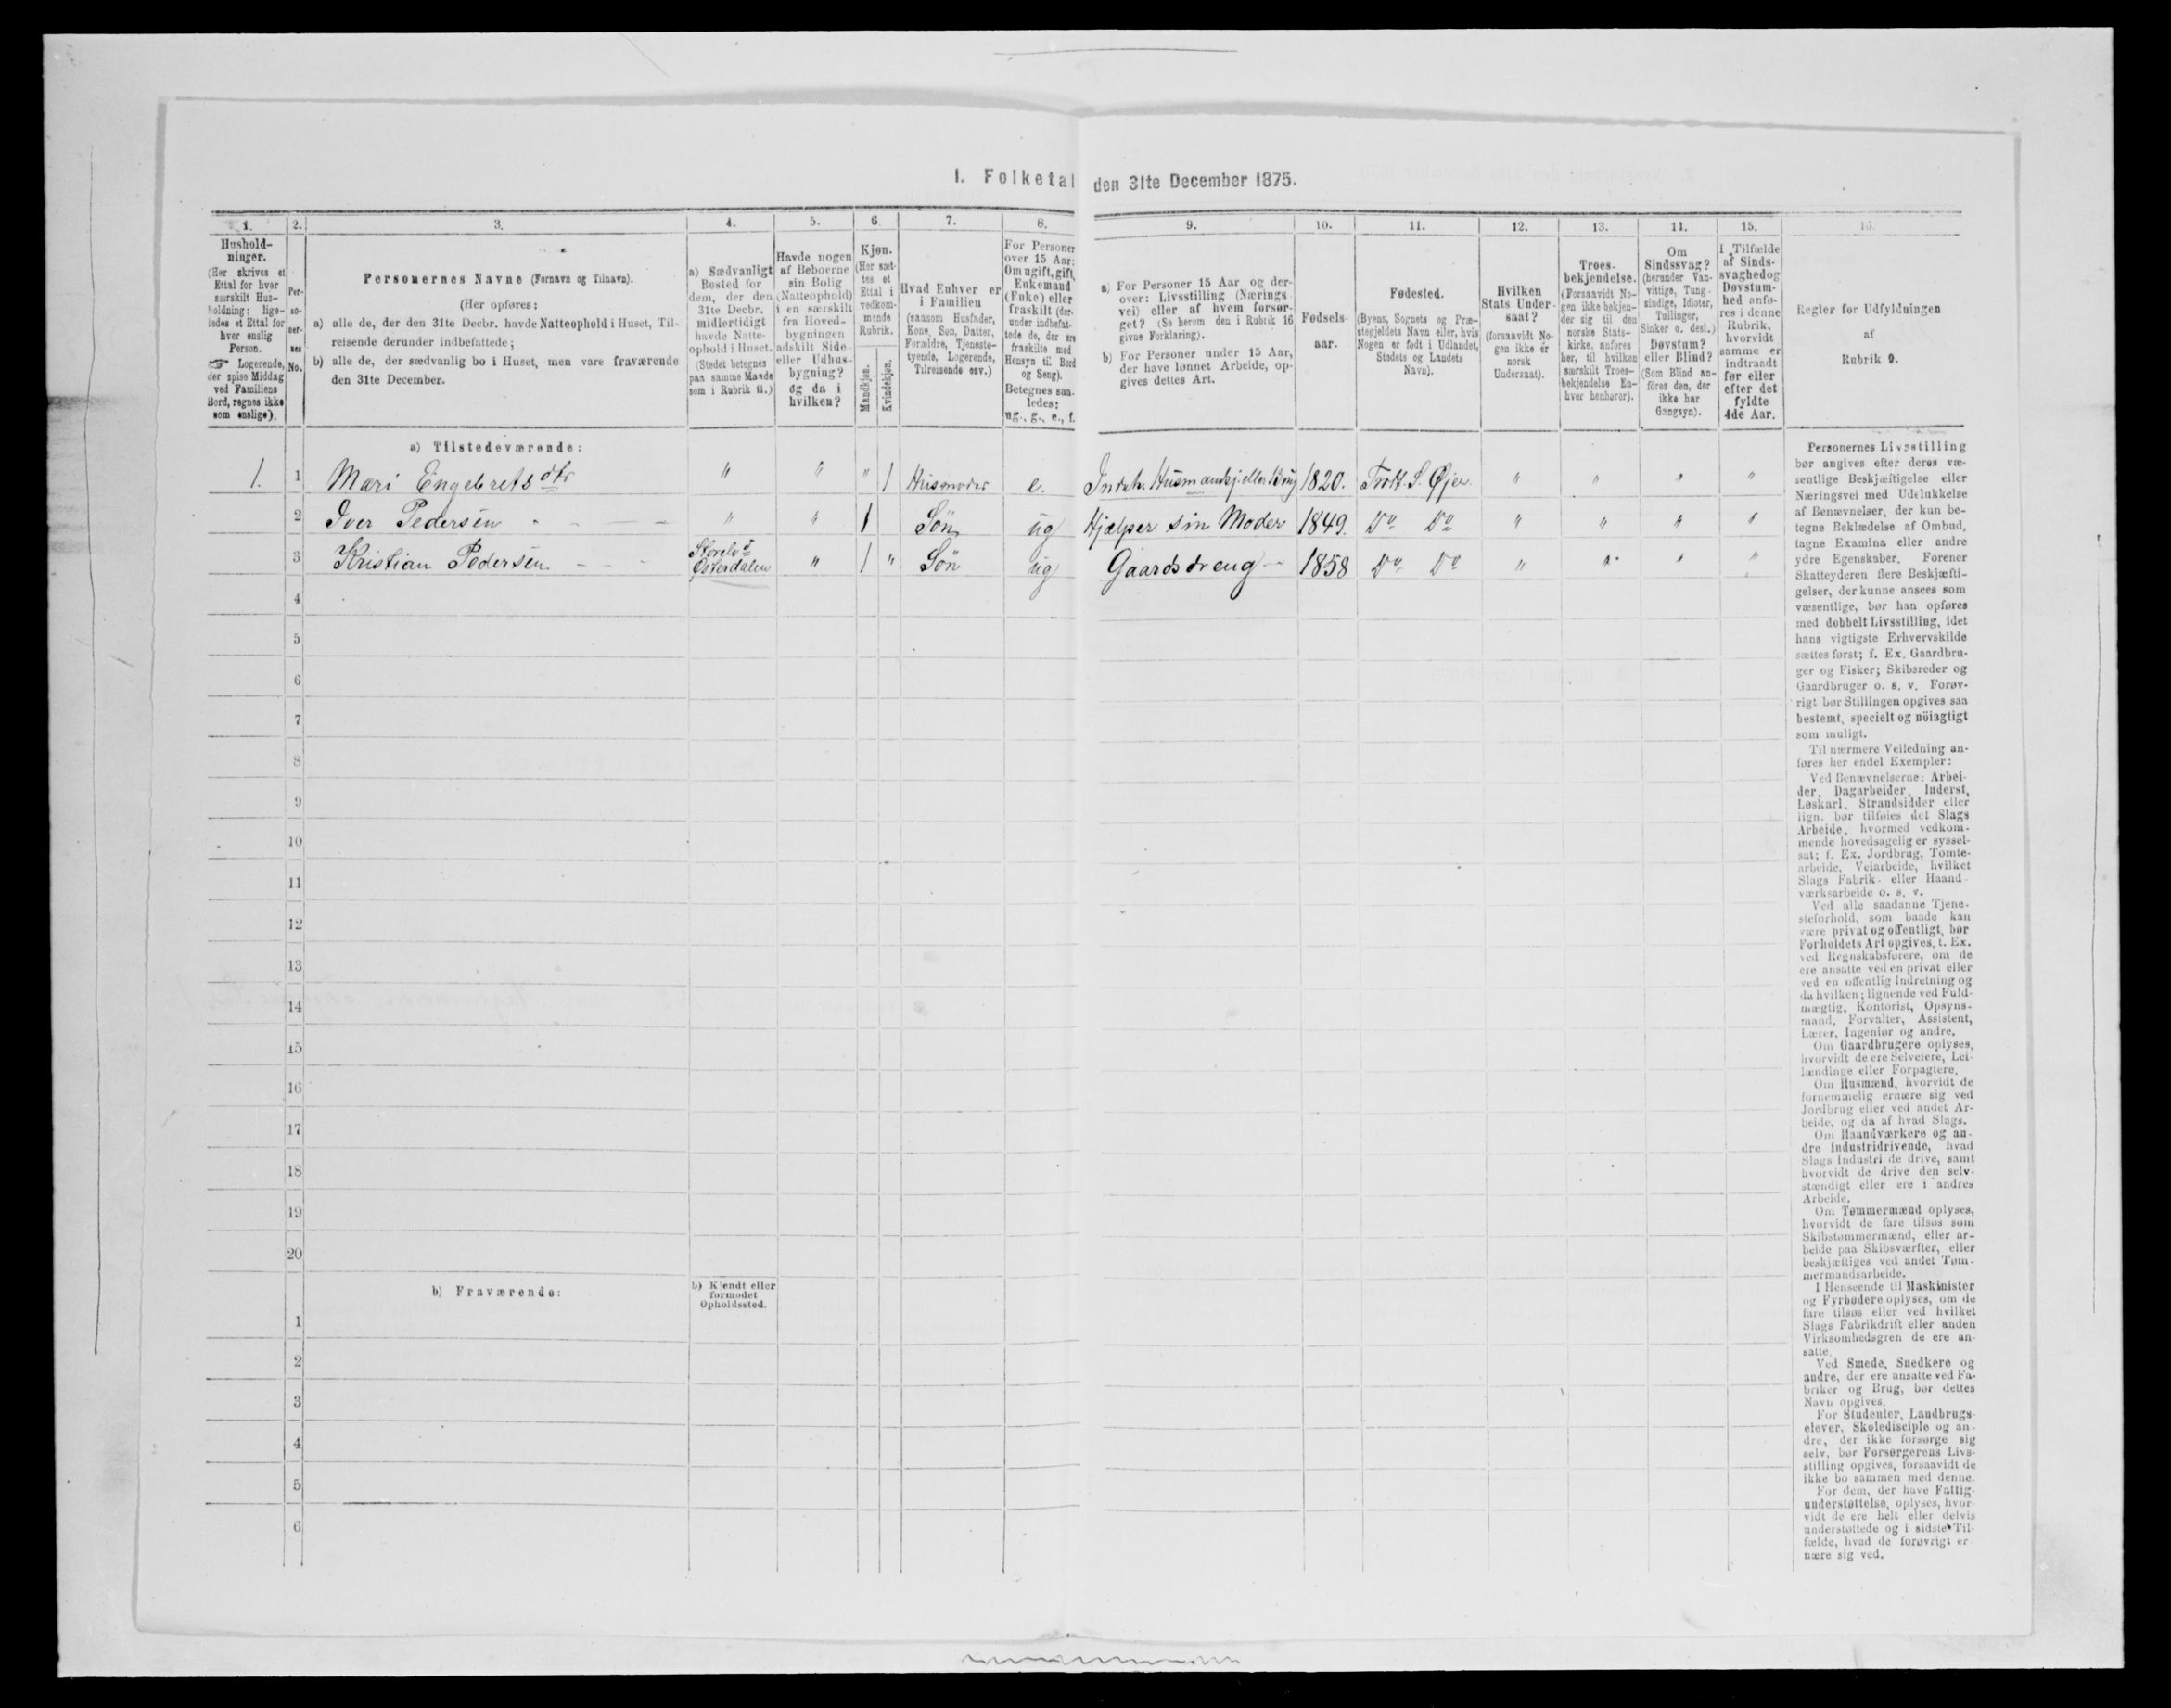 I. Folketal den 31te December 1875.
1. 2. 3. 4. 5. 6 7. 8. 9. 10. 11. 12. 13. 14. 15. 16.
Hushold-
ninger.
(Her skrives et
Ettal for hver
særskilt Hus-
holdning; lige-
ledes et Ettal for
hver enslig
Person.
☞ Logerende,
der spise Middag
ved Familiens
Bord, regnes ikke
som enslige).
Per-
so-
ner-
nes
No.
Personernes Navne (Fornavn og Tilnavn).
(Her opføres:
a) alle de, der den 31te Decbr. havde Natteophold i Huset, Til-
reisende derunder indbefattede;
b) alle de, der sædvanlig bo i Huset, men vare fraværende
den 31te December.
a) Sædvanligt
Bosted for
dem, der den
31te Decbr.
midlertidigt
havde Natte-
ophold i Huset.
(Stedet betegnes
paa samme Maade
som i Rubrik 11.)
Havde nogen
af Beboerne
sin Bolig
(Natteophold)
i en særskilt
fra Hoved-
bygningen
adskilt Side-
eller Udhus-
bygning?
og da i
hvilken?
Kjøn.
(Her sæt-
tes et
Ettal i
vedkom-
mende
Rubrik.
Mandkjøn.
Kvindekjøn.
Hvad Enhver er
i Familien
(saasom Husfader,
Kone, Søn, Datter,
Forældre, Tjeneste-
tyende, Logerende,
Tilreisende osv.)
For Personer
over 15 Aar:
Om ugift, gift,
Enkemand
(Enke) eller
fraskilt (der-
under indbefat-
tede de, der ere
fraskilte med
Hensyn til Bord
og Seng).
Betegnes saa-
ledes:
ug., g., e., f.
a) For Personer 15 Aar og der-
over: Livsstilling (Nærings-
vei) eller af hvem forsør-
get? (Se herom den i Rubrik 16
givne Forklaring).
b) For Personer under 15 Aar,
der have lønnet Arbeide, op-
gives dettes Art.
Fødsels-
aar.
Fødested.
(Byens, Sognets og Præ-
stegjeldets Navn eller, hvis
Nogen er født i Udlandet,
Stedets og Landets
Navn).
Hvilken
Stats Under-
saat?
(forsaavidt No-
gen ikke er
norsk
Undersaat).
Troes-
bekjendelse.
(Forsaavidt No-
gen ikke bekjen-
der sig til den
norske Stats-
kirke, anføres
her, til hvilken
særskilt Troes-
bekjendelse En-
hver henhører).
Om
Sindssvag?
(herunder Van-
vittige, Tung-
sindige, Idioter,
Tullinger,
Sinker o. desl.)
Døvstum?
eller Blind?
(Som Blind an-
føres den, der
ikke har
Gangsyn).
I Tilfælde
af Sinds-
svaghed og
Døvstum-
hed anfø-
res i denne
Rubrik,
hvorvidt
samme er
indtraadt
før eller
efter det
fyldte
4de Aar.
Regler for Udfyldningen
af
Rubrik 9.
a) Tilstedeværende:
1. 1 Mari Engebretsdtr " " " 1 Husmoder e. Indeh. Husmandspj. eller Brug 1820. Trtt. S. Øjer. " " " "
2 Iver Pedersen " " 1 Søn ug Hjælper sin Moder 1849. Do Do " " " "
3 Kristian Pedersen Storelvd Østerdalen " 1 " Søn ug Gaardsdreng 1858 Do Do " " " "
4
5
6
7
8
9
10
11
12
13
14
15
16
17
18
19
20
b) Fraværende:
b) Kjendt eller
formodet
Opholdssted.
1
2
3
4
5
6
Personernes Livsstilling
bør angives efter deres væ-
sentlige Beskjæftigelse eller
Næringsvei med Udelukkelse
af Benævnelser, der kun be-
tegne Beklædelse af Ombud,
tagne Examina eller andre
ydre Egenskaber. Forener
Skatteyderen flere Beskjæfti-
gelser, der kunne ansees som
væsentlige, bør han opføres
med dobbelt Livsstilling, idet
hans vigtigste Erhvervskilde
sættes først; f. Ex. Gaardbru-
ger og Fisker; Skibsreder og
Gaardbruger o. s. v. Forøv-
rigt bør Stillingen opgives saa
bestemt, specielt og nöiagtigt
som muligt.
Til nærmere Veiledning an-
føres her endel Exempler:
Ved Benævnelserne: Arbei-
der, Dagarbeider, Inderst,
Løskarl, Strandsidder eller
lign. bør tilføies det Slags
Arbeide, hvormed vedkom-
mende hovedsagelig er syssel-
sat; f. Ex. Jordbrug, Tomte-
arbeide, Veiarbeide, hvilket
Slags Fabrik- eller Haand-
værksarbeide o. s. v.
Ved alle saadanne Tjene-
steforhold, som baade kan
være privat og offentligt, bør
Forholdets Art opgives, f. Ex.
ved Regnskabsførere, om de
ere ansatte ved en privat eller
ved en offentlig Indretning og
da hvilken; lignende ved Fuld-
mægtig, Kontorist, Opsyns-
mand, Forvalter, Assistent,
Lærer, Ingeniør og andre.
Om Gaardbrugere oplyses,
hvorvidt de ere Selveiere, Lei-
lændinge eller Forpagtere.
Om Husmænd, hvorvidt de
fornemmelig ernære sig ved
Jordbrug eller ved andet Ar-
beide, og da af hvad Slags.
Om Haandværkere og an-
dre Industridrivende, hvad
Slags Industri de drive, samt
hvorvidt de drive den selv-
stændigt eller ere i andres
Arbeide.
Om Tømmermænd oplyses,
hvorvidt de fare tilsøs som
Skibstømmermænd, eller ar-
beide paa Skibsværfter, eller
beskjæftiges ved andet Tøm-
mermandsarbeide.
I Henseende til Maskinister
og Fyrbødere oplyses, om de
fare tilsøs eller ved hvilket
Slags Fabrikdrift eller anden
Virksomhedsgren de ere an-
satte.
Ved Smede, Snedkere og
andre, der ere ansatte ved Fa-
briker og Brug, bør dettes
Navn opgives.
For Studenter, Landbrugs-
elever, Skoledisciple og an-
dre, der ikke forsørge sig
selv, bør Forsørgerens Livs-
stilling opgives, forsaavidt de
ikke bo sammen med denne.
For dem, der have Fattig-
understøttelse, oplyses, hvor-
vidt de ere helt eller delvis
understøttede og i sidste Til-
fælde, hvad de forøvrigt er-
nære sig ved.